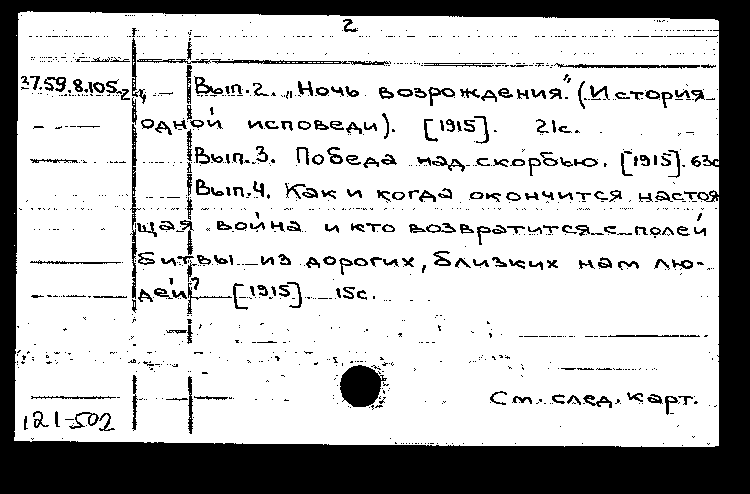 2
37.59.8.105 2/4 Вып.2. „Ночь возрождения". (История
одной исповеди). [1915]. 21с.
Вып.3. Победа над скорбью. [1915]. 63с
Вып.4. Как и когда окончится настоя
щая война и кто возвратится с полей
битвы из дорогих, близких нам лю-
дей? [1915] 15с.
См. след. карт.
121-502